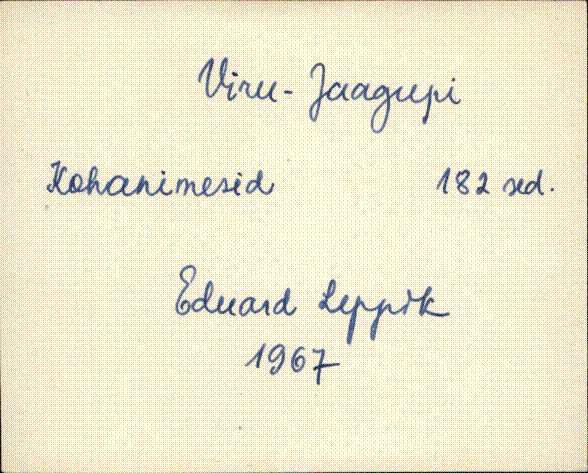 Viru-Jaagupi
Kohanimesid 182 sed.
Eduard Leppik
1967